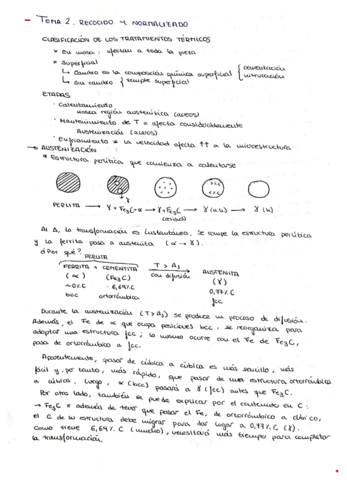 - TEMA 2. RECOCIDO Y NORMALIZADO
CLASIFICACIÓN DE LOS TRATAMIENTOS TÉRMICOS
* En masa: afectan a toda la pieza
* Superficial
↳ Cambio en la composición química superficial { cementación
nitruración
↳ Sin cambio { temple superficial
ETAPAS
· Calentamiento
Hasta región austenítica (aceros)
· Mantenimiento de T = afecta considerablemente
Austenización (aceros)
· Enfriamiento * la velocidad afecta ↑↑ a la microestructura
→ AUSTENIZACIÓN
* Estructura perlítica que comienza a calentarse
γ
PERLITA → γ + Fe3C + α → γ + Fe3C → γ (n.u) → γ (u)
Al A, la transformación es instantánea, se rompe la estructura perlítica
y la ferrita pasa a austenita (α → γ).
¿Por qué?
PERLITA
FERRITA + CEMENTITA T > A1 AUSTENITA
(α) (Fe3C) con difusión (γ)
~0%C 6,67%C 0,77%C
bcc ortorrómbica fcc
Durante la austenización (T>A1) se produce un proceso de difusión.
Además, el Fe de α que ocupa posiciones bcc, se reorganiza para
adoptar una estructura fcc; lo mismo ocurre con el Fe de Fe3C,
pasa de ortorrómbico a fcc.
Aparentemente, pasar de cúbica a cúbica es más sencillo, más
fácil y, por tanto, más rápido, que pasar de una estructura ortorrómbica
a cúbica. Luego, α (bcc) pasará a γ (fcc) antes que Fe3C.
Por otro lado, también se puede explicar por el contenido en C:
→ Fe3C = además de tener que pasar el Fe, de ortorrómbico a cúbico,
el C de su estructura debe migrar para dar lugar a 0,77% C (γ).
Como tiene 6,67% C (mucho), necesitará más tiempo para completar
la transformación